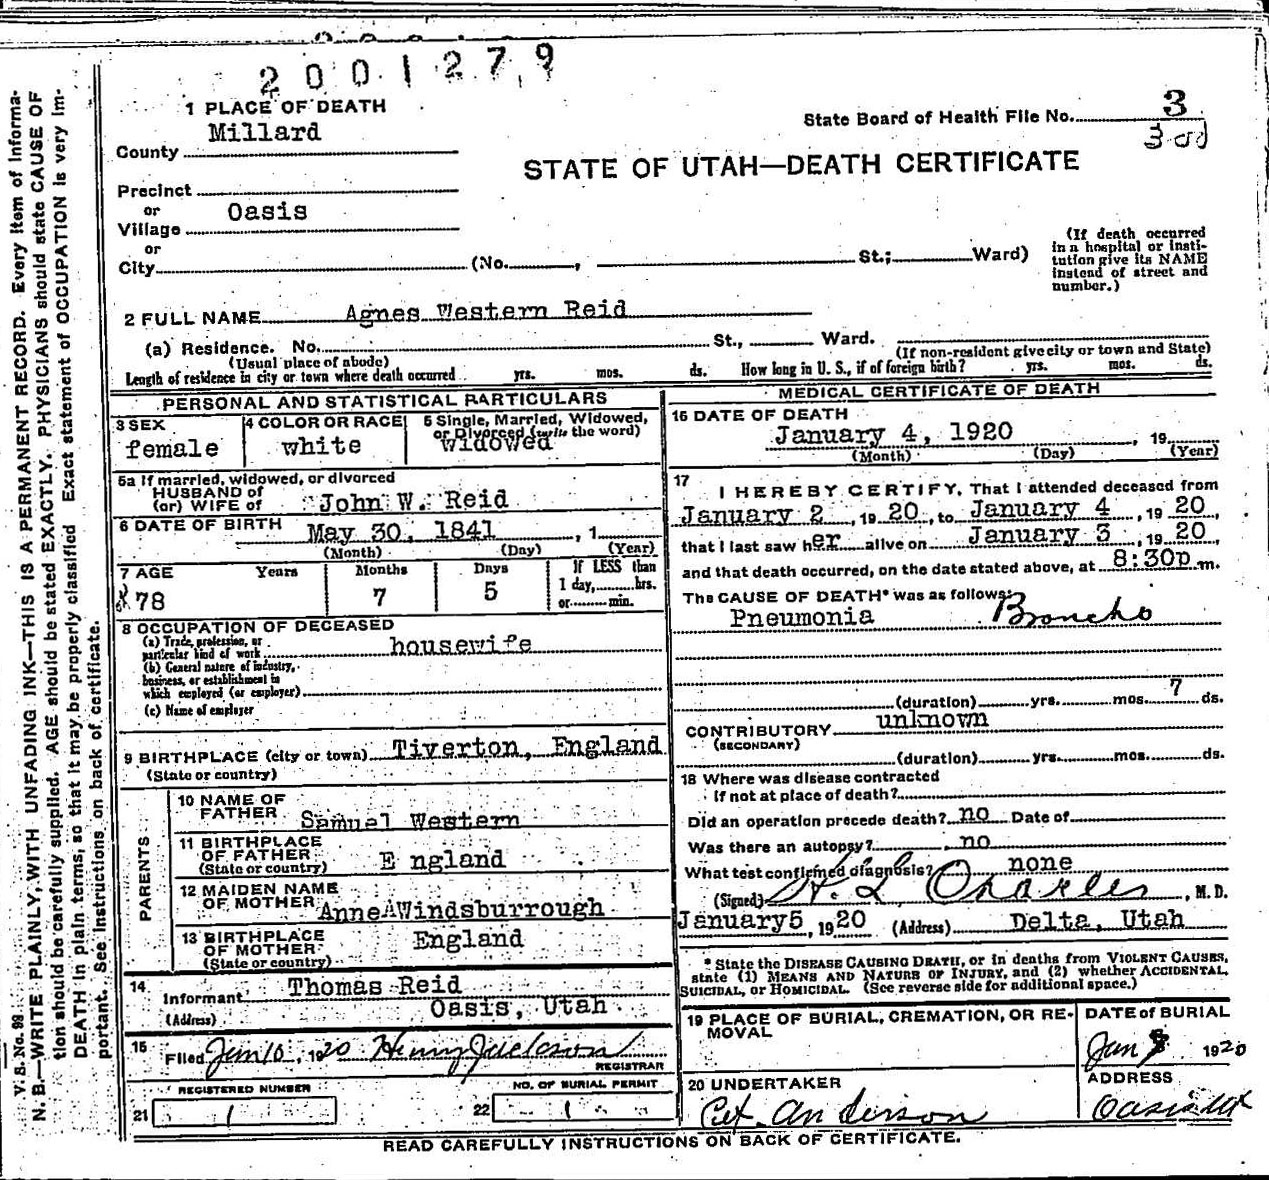 2001279
1 PLACE OF DEATH
State Board of Health File No. 3
300
County Millard
STATE OF UTAH—DEATH CERTIFICATE
Precinct
or
Village Oasis
or
City (No. , St.; Ward)
(If death occurred
in a hospital or insti-
tution give its NAME
instead of street and
number.)
2 FULL NAME Agnes Western Reid
(a) Residence. No. St., Ward.
(Usual place of abode) (If non-resident give city or town and State)
Length of residence in city or town where death occurred yrs. mos. ds. How long in U. S., if of foreign birth? yrs. mos. ds.
PERSONAL AND STATISTICAL PARTICULARS
3 SEX
female
4 COLOR OR RACE
white
5 Single, Married, Widowed,
or Divorced (write the word)
widowed
5a If married, widowed, or divorced
HUSBAND of
(or) WIFE of John W. Reid
6 DATE OF BIRTH May 30, 1841 , 1
(Month) (Day) (Year)
7 AGE Years Months Days If LESS than
1 day, hrs.
or min.
78 7 5
8 OCCUPATION OF DECEASED
(a) Trade, profession, or
particular kind of work housewife
(b) General nature of industry,
business, or establishment in
which employed (or employer)
(c) Name of employer
9 BIRTHPLACE (city or town) Tiverton, England
(State or country)
PARENTS
10 NAME OF
FATHER Samuel Western
11 BIRTHPLACE
OF FATHER England
(State or country)
12 MAIDEN NAME
OF MOTHER Anne A Windsburrough
13 BIRTHPLACE
OF MOTHER England
(State or country)
14
Informant Thomas Reid
(Address) Oasis, Utah
15
Filed Jan 10, 1920 Henry Jackson
REGISTRAR
REGISTERED NUMBER
21 1
NO. OF BURIAL PERMIT
22 1
MEDICAL CERTIFICATE OF DEATH
16 DATE OF DEATH
January 4, 1920 , 19
(Month) (Day) (Year)
17
I HEREBY CERTIFY, That I attended deceased from
January 2 , 19 20, to January 4 , 19 20,
that I last saw her alive on January 3 , 19 20,
and that death occurred, on the date stated above, at 8:30p m.
The CAUSE OF DEATH* was as follows:
Pneumonia Broncho
(duration) yrs. mos. 7 ds.
CONTRIBUTORY unknown
(SECONDARY)
(duration) yrs. mos. ds.
18 Where was disease contracted
if not at place of death?
Did an operation precede death? no Date of
Was there an autopsy? no
What test confirmed diagnosis? none
(Signed) H. L Charles, M. D.
January 5, 1920 (Address) Delta, Utah
* State the DISEASE CAUSING DEATH, or in deaths from VIOLENT CAUSES,
state (1) MEANS AND NATURE OF INJURY, and (2) whether ACCIDENTAL,
SUICIDAL, or HOMICIDAL. (See reverse side for additional space.)
19 PLACE OF BURIAL, CREMATION, OR RE-
MOVAL
DATE of BURIAL
Jan 8 1920
20 UNDERTAKER
Anderson
ADDRESS
Oasis Ut
READ CAREFULLY INSTRUCTIONS ON BACK OF CERTIFICATE.
V. S. No. 99
N. B.—WRITE PLAINLY, WITH UNFADING INK—THIS IS A PERMANENT RECORD. Every item of informa-
tion should be carefully supplied. AGE should be stated EXACTLY. PHYSICIANS should state CAUSE OF
DEATH in plain terms, so that it may be properly classified. Exact statement of OCCUPATION is very im-
portant. See instructions on back of certificate.